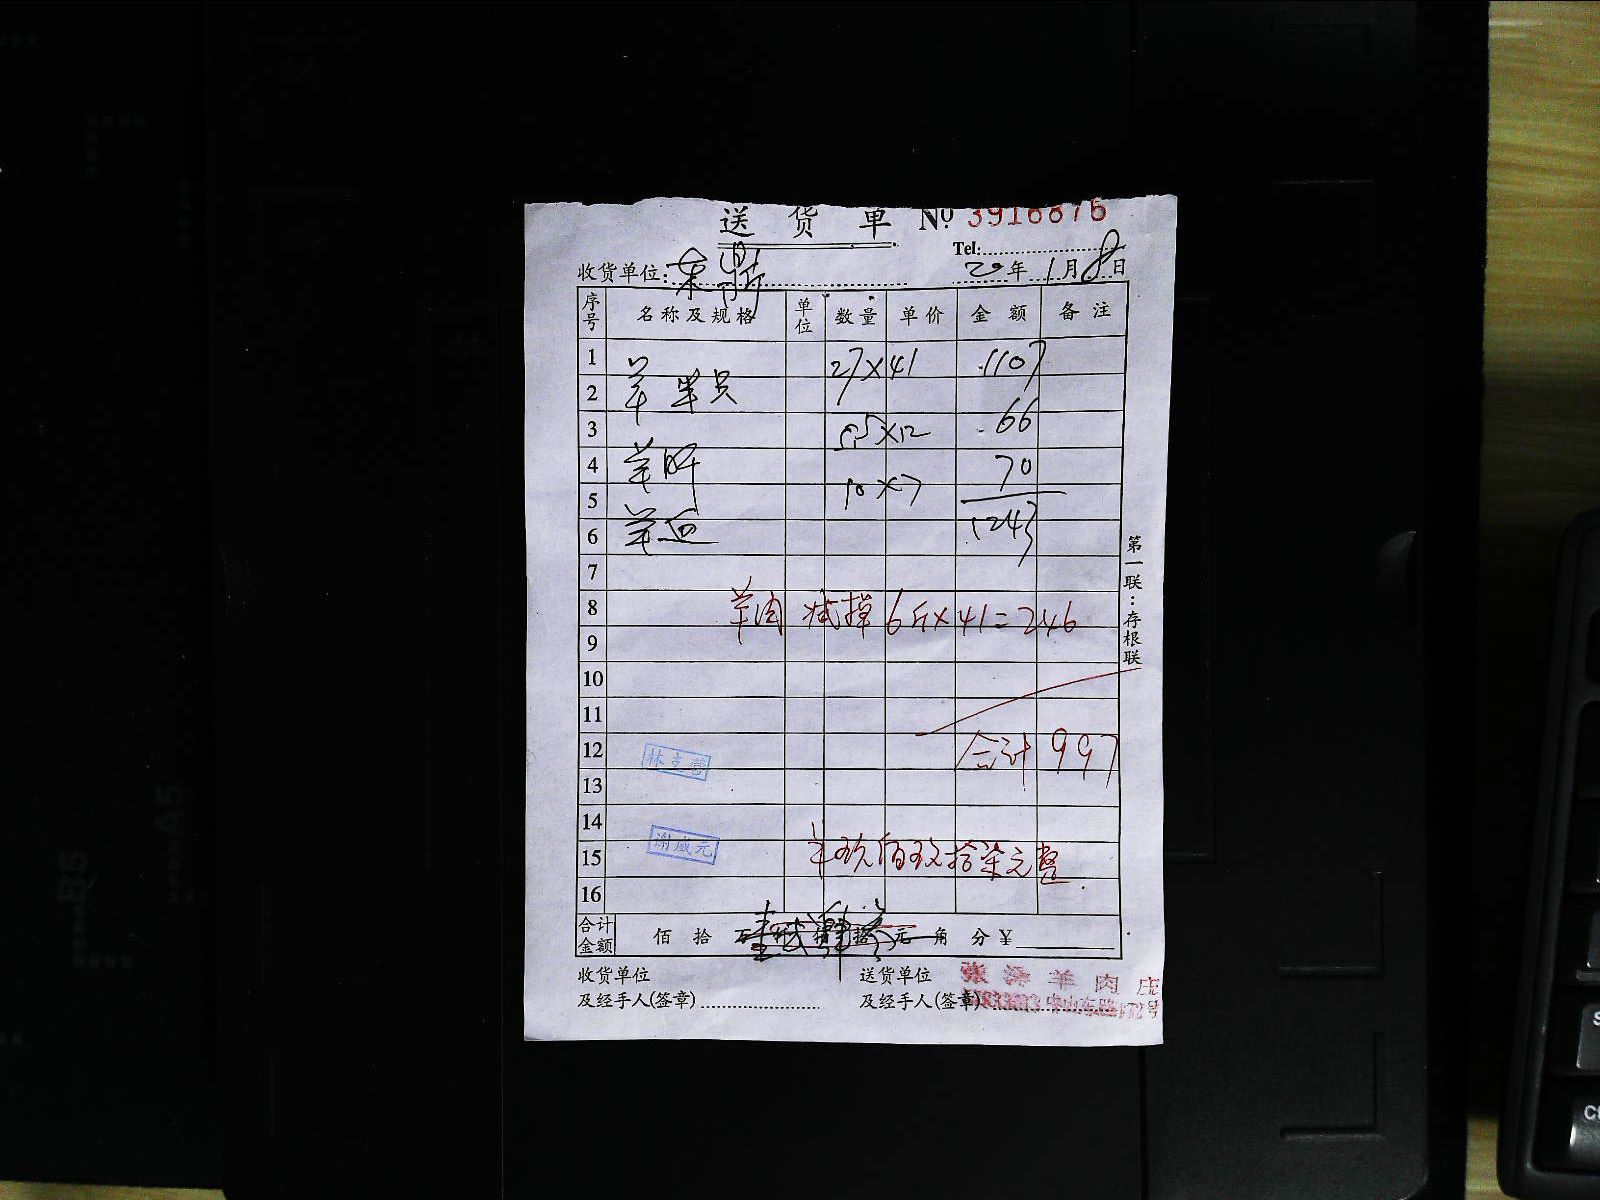 送货单 Nº 3916876
Tel:
收货单位: 东鼎 20年1月8日
序号 名称及规格 单位 数量 单价 金额 备注
1 27×41 1107
2 羊
3 5.5×12 66
4 羊肝 70
5 10×7
6 羊血 1243
7
8 羊肉 减掉6斤×41=246
9
10
11
12 林克蓉 合计 997
13
14
15 谢盛元 羊玖佰玖拾柒元整
16
合计金额 佰 拾 万 仟 佰 拾 元 角 分 ¥
收货单位 送货单位
及经手人(签章) 及经手人(签章)
羊肉庄
中山东路172号
第一联:存根联
BS
A5